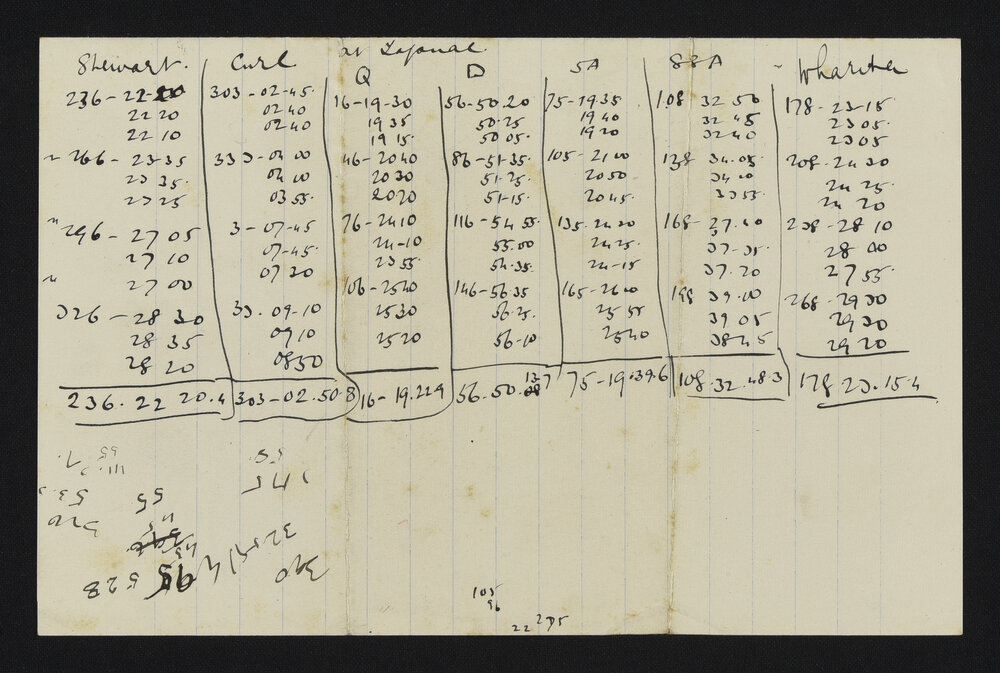 at
Stewart. Curl Q D SA SSA Wharita
236-22-20 303-02-45 16-19-30 56-50.20 75-19.35 108 32 50 178-23-15
22 20 02 40 19 35 50.25 19 40 32 45 23 05
22 10 02 40 19 15 50 05 19 20 32 40 23 05
266-23-35 333-04 00 46-20 40 86-51-35 105-21 00 138 34.05 208-24 30
23 35 04 00 20 30 51-25 20 50 34 00 24 25
23 25 03 55 20 20 51-15 20 45 33 55 24 20
296-27 05 3-07-45 76-24 10 116-54 55 135.24 20 168-37.40 238-28 10
27 10 07-45 24-10 55.00 24 25 37-35 28 00
27 00 07 30 23 55 54.35 24-15 37.20 27 55
326-28 30 33.09-10 106-25 40 146-56 35 165-26 00 198 39.00 268-29 30
28 35 09 10 25 30 56-25 25 55 39.05 29 30
28 20 08 50 25 20 56-10 25 40 38 45 29 20
236.22 20.4 303-02.50.8 16-19.22.9 56.50.13.7 75-19.39.6 108.32.48.3 178 23.15.4
55
528 95 390
105
96
22